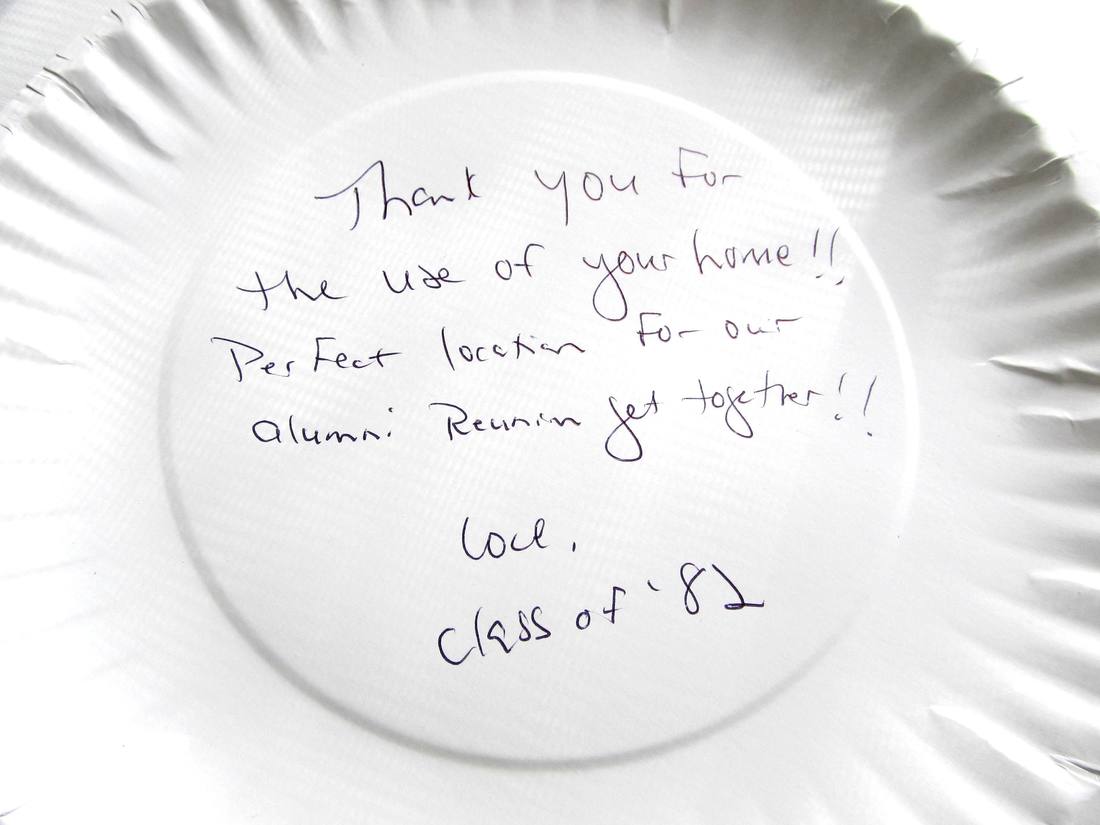 Thank you For
the use of your home!!
Perfect location For our
alumni Reunion get together!!
Love,
Class of '82